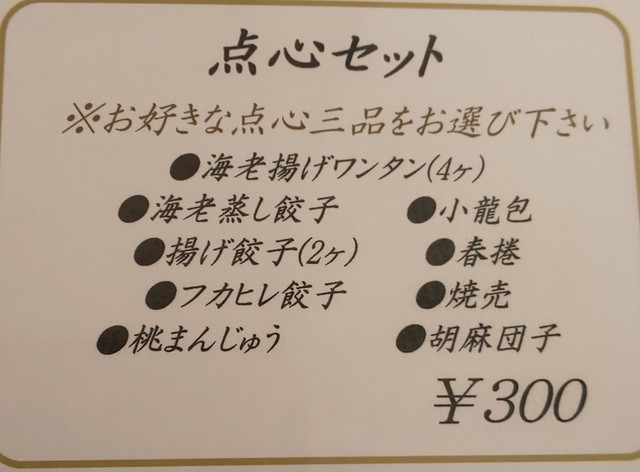 点心セット
※お好きな点心三品をお選び下さい
●海老揚げワンタン(4ヶ)
●海老蒸し餃子 ●小龍包
●揚げ餃子(2ヶ) ●春捲
●フカヒレ餃子 ●焼売
●桃まんじゅう ●胡麻団子
¥300